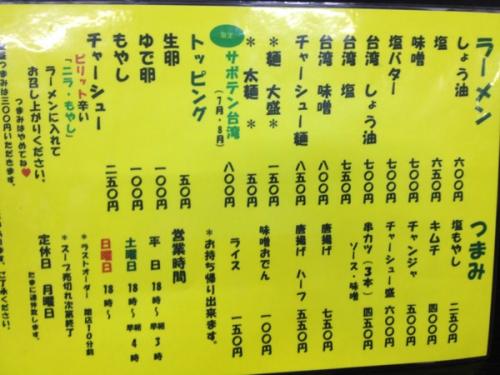 ラーメン
しょう油 六〇〇円
塩 六五〇円
味噌 七〇〇円
塩バター 七〇〇円
台湾 しょう油 七〇〇円
台湾 塩 七五〇円
台湾 味噌 八〇〇円
チャーシュー麺 八五〇円
＊麺 大盛＊ 一五〇円
＊太麺＊ 五〇円
限定 サボテン台湾 八〇〇円
（７月・８月）
トッピング
生卵 五〇円
ゆで卵 一〇〇円
もやし 一〇〇円
チャーシュー 二五〇円
ピリット辛い
「ニラ・もやし」
ラーメンに入れて
お召し上がりください。
つまみはやめてね♥
つまみは三〇〇円いただきます。
つまみ
塩もやし 二五〇円
キムチ 四〇〇円
チャンジャ 五〇〇円
チャーシュー盛 六〇〇円
串カツ（３本） 四五〇円
ソース・味噌
唐揚げ 七五〇円
唐揚げ ハーフ 五五〇円
味噌おでん 一五〇円
ライス 一五〇円
＊お持ち帰り出来ます。
営業時間
平 日 18時〜早朝３時
土曜日 18時〜早朝４時
日曜日 18時〜
＊ラストオーダー 閉店１０分前
＊スープ売切れ次第終了
定休日 月曜日
たまに連休致します。
ご了承ください。